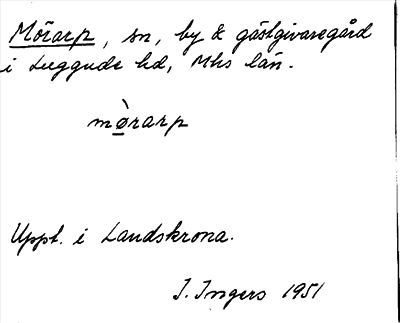 Mörarp, sn, by & gästgivaregård
i Luggude hd, Mhs län.
mò̱rarp
Uppt. i Landskrona.
I. Ingers 1951